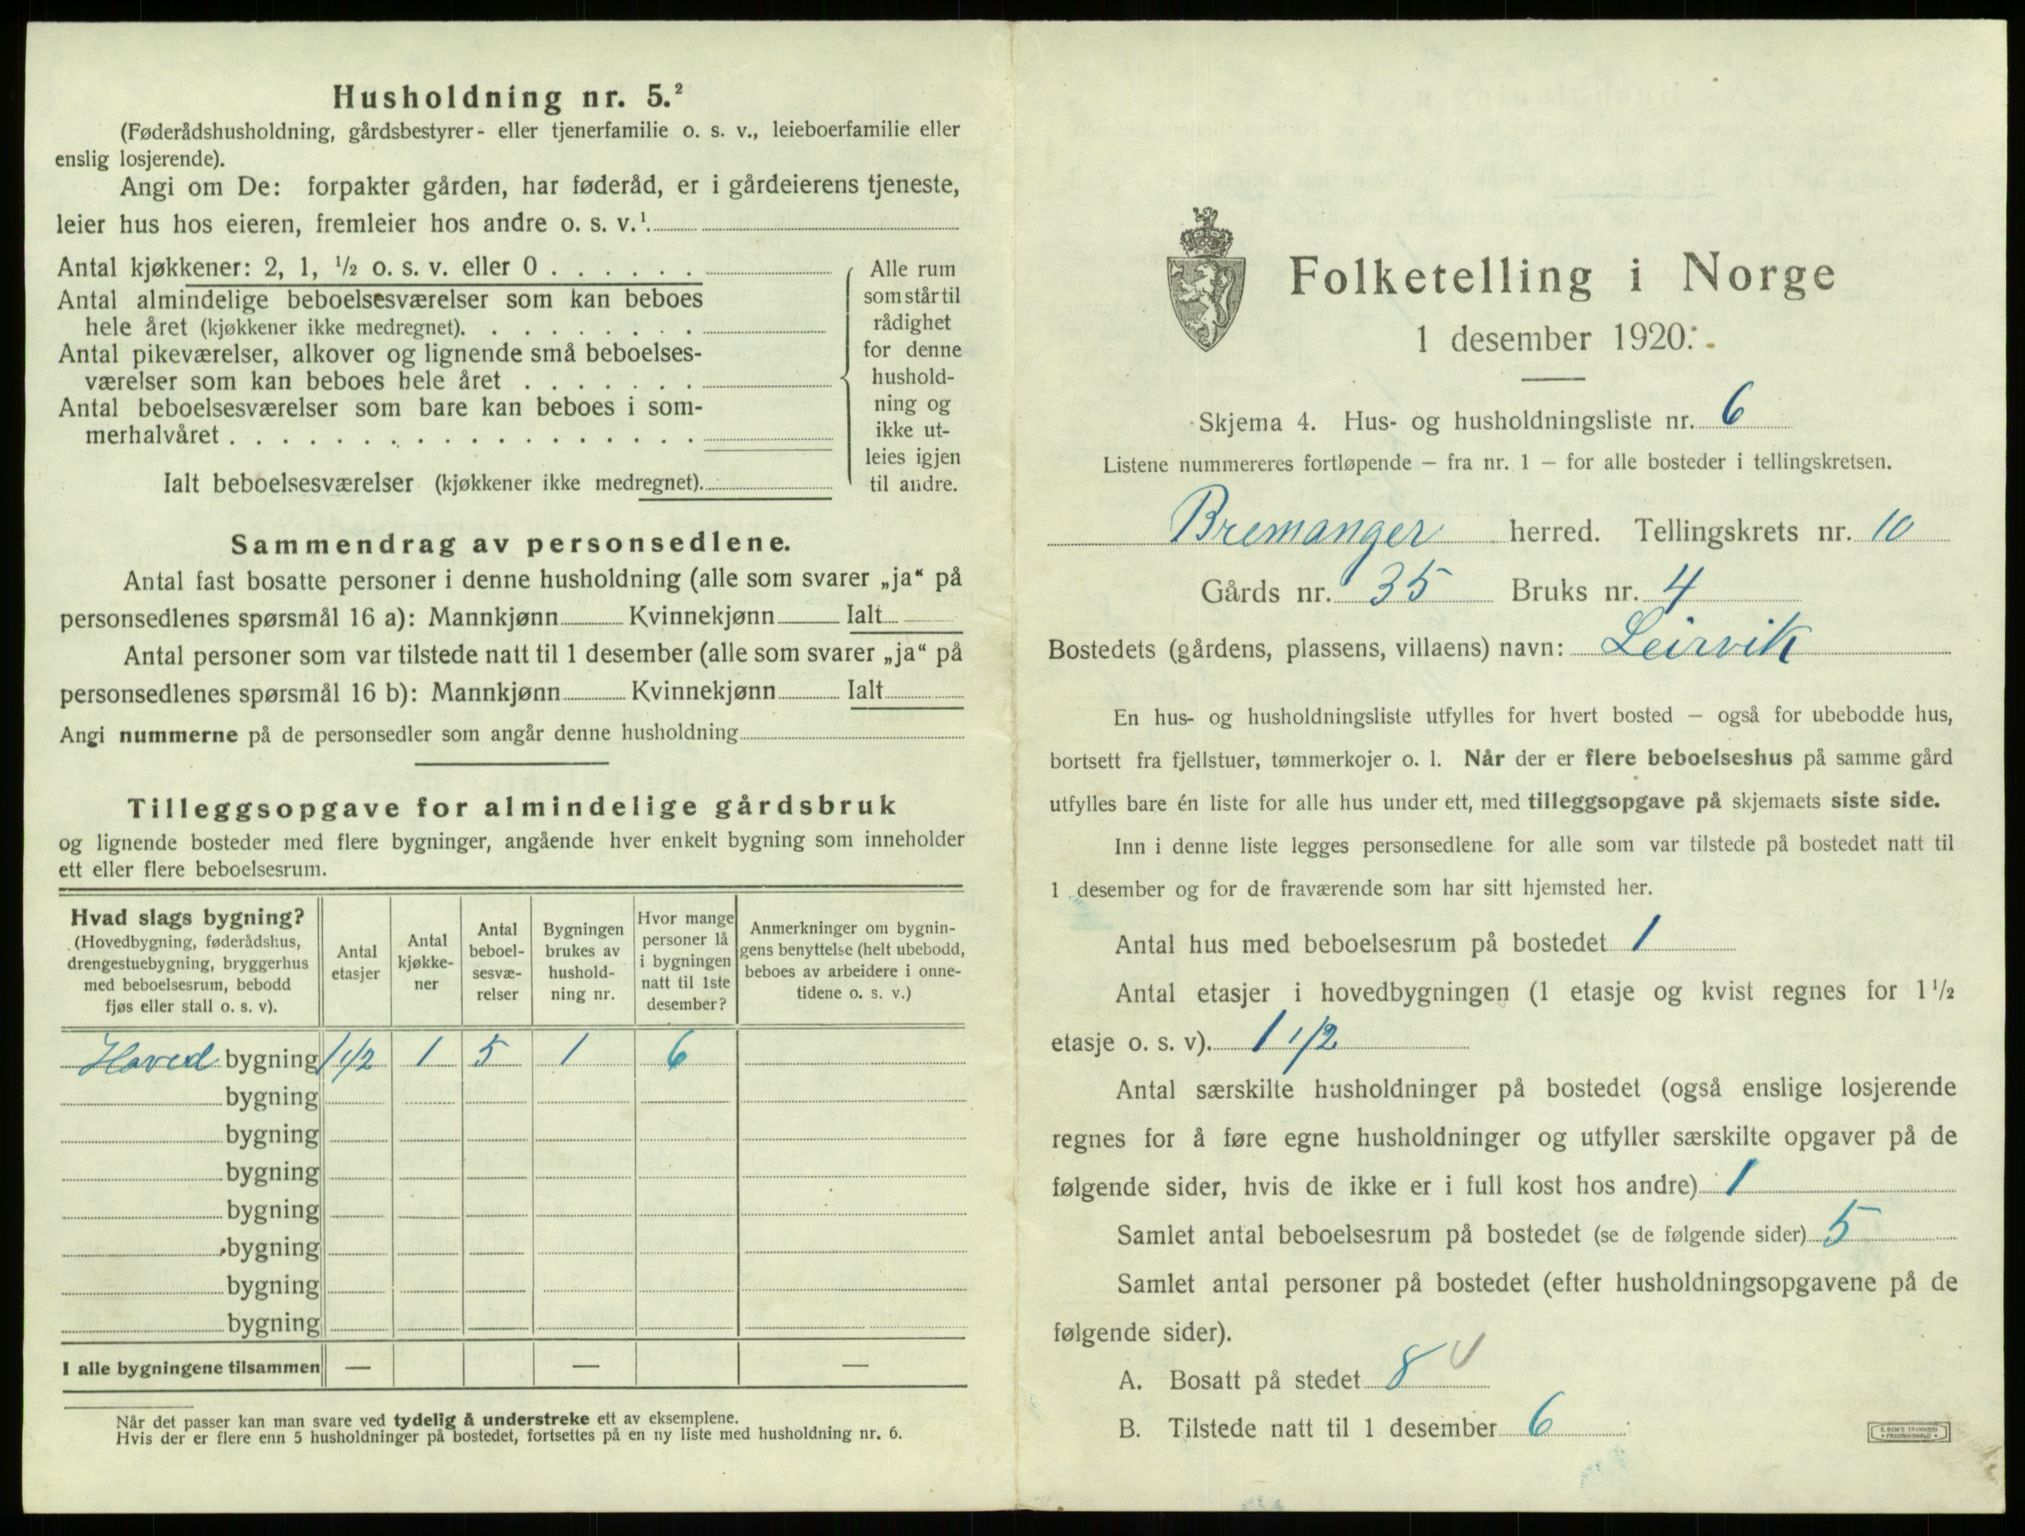 Husholdning nr. 5.²
(Føderådshusholdning, gårdsbestyrer- eller tjenerfamilie o. s. v., leieboerfamilie eller
enslig losjerende).
Angi om De: forpakter gården, har føderåd, er i gårdeierens tjeneste,
leier hus hos eieren, fremleier hos andre o. s. v.¹
Antal kjøkkener: 2, 1, ½ o. s. v. eller 0 . . . . . .
Antal almindelige beboelsesværelser som kan beboes
hele året (kjøkkener ikke medregnet). . . . . . . . .
Antal pikeværelser, alkover og lignende små beboelses-
værelser som kan beboes hele året . . . . . . .
Antal beboelsesværelser som bare kan beboes i som-
merhalvåret . . . . . . . . . . . . . . . . . .
Ialt beboelsesværelser (kjøkkener ikke medregnet).
Alle rum
som står til
rådighet
for denne
hushold-
ning og
ikke ut-
leies igjen
til andre.
Sammendrag av personsedlene.
Antal fast bosatte personer i denne husholdning (alle som svarer „ja“ på
personsedlenes spørsmål 16 a): Mannkjønn Kvinnekjønn Ialt
Antal personer som var tilstede natt til 1 desember (alle som svarer „ja“ på
personsedlenes spørsmål 16 b): Mannkjønn Kvinnekjønn Ialt
Angi nummerne på de personsedler som angår denne husholdning
Tilleggsopgave for almindelige gårdsbruk
og lignende bosteder med flere bygninger, angående hver enkelt bygning som inneholder
ett eller flere beboelsesrum.
Hvad slags bygning?
(Hovedbygning, føderådshus,
drengestuebygning, bryggerhus
med beboelsesrum, bebodd
fjøs eller stall o. s. v).
Antal
etasjer
Antal
kjøkke-
ner
Antal
beboel-
sesvæ-
relser
Bygningen
brukes av
hushold-
ning nr.
Hvor mange
personer lå
i bygningen
natt til 1ste
desember?
Anmerkninger om bygnin-
gens benyttelse (helt ubebodd,
beboes av arbeidere i onne-
tidene o. s. v.)
Hoved bygning 1 1/2 1 5 1 6
bygning
bygning
bygning
bygning
bygning
bygning
bygning
I alle bygningene tilsammen — — —
Når det passer kan man svare ved tydelig å understreke ett av eksemplene.
Hvis der er flere enn 5 husholdninger på bostedet, fortsettes på en ny liste med husholdning nr. 6.
Folketelling i Norge
1 desember 1920.
Skjema 4. Hus- og husholdningsliste nr. 6
Listene nummereres fortløpende — fra nr. 1 — for alle bosteder i tellingskretsen.
Bremanger herred. Tellingskrets nr. 10
Gårds nr. 35 Bruks nr. 4
Bostedets (gårdens, plassens, villaens) navn: Leirvik
En hus- og husholdningsliste utfylles for hvert bosted — også for ubebodde hus,
bortsett fra fjellstuer, tømmerkojer o. l. Når der er flere beboelseshus på samme gård
utfylles bare én liste for alle hus under ett, med tilleggsopgave på skjemaets siste side.
Inn i denne liste legges personsedlene for alle som var tilstede på bostedet natt til
1 desember og for de fraværende som har sitt hjemsted her.
Antal hus med beboelsesrum på bostedet 1
Antal etasjer i hovedbygningen (1 etasje og kvist regnes for 1½
etasje o. s. v). 1 1/2
Antal særskilte husholdninger på bostedet (også enslige losjerende
regnes for å føre egne husholdninger og utfyller særskilte opgaver på de
følgende sider, hvis de ikke er i full kost hos andre) 1
Samlet antal beboelsesrum på bostedet (se de følgende sider) 5
Samlet antal personer på bostedet (efter husholdningsopgavene på de
følgende sider).
A. Bosatt på stedet 8
B. Tilstede natt til 1 desember 6